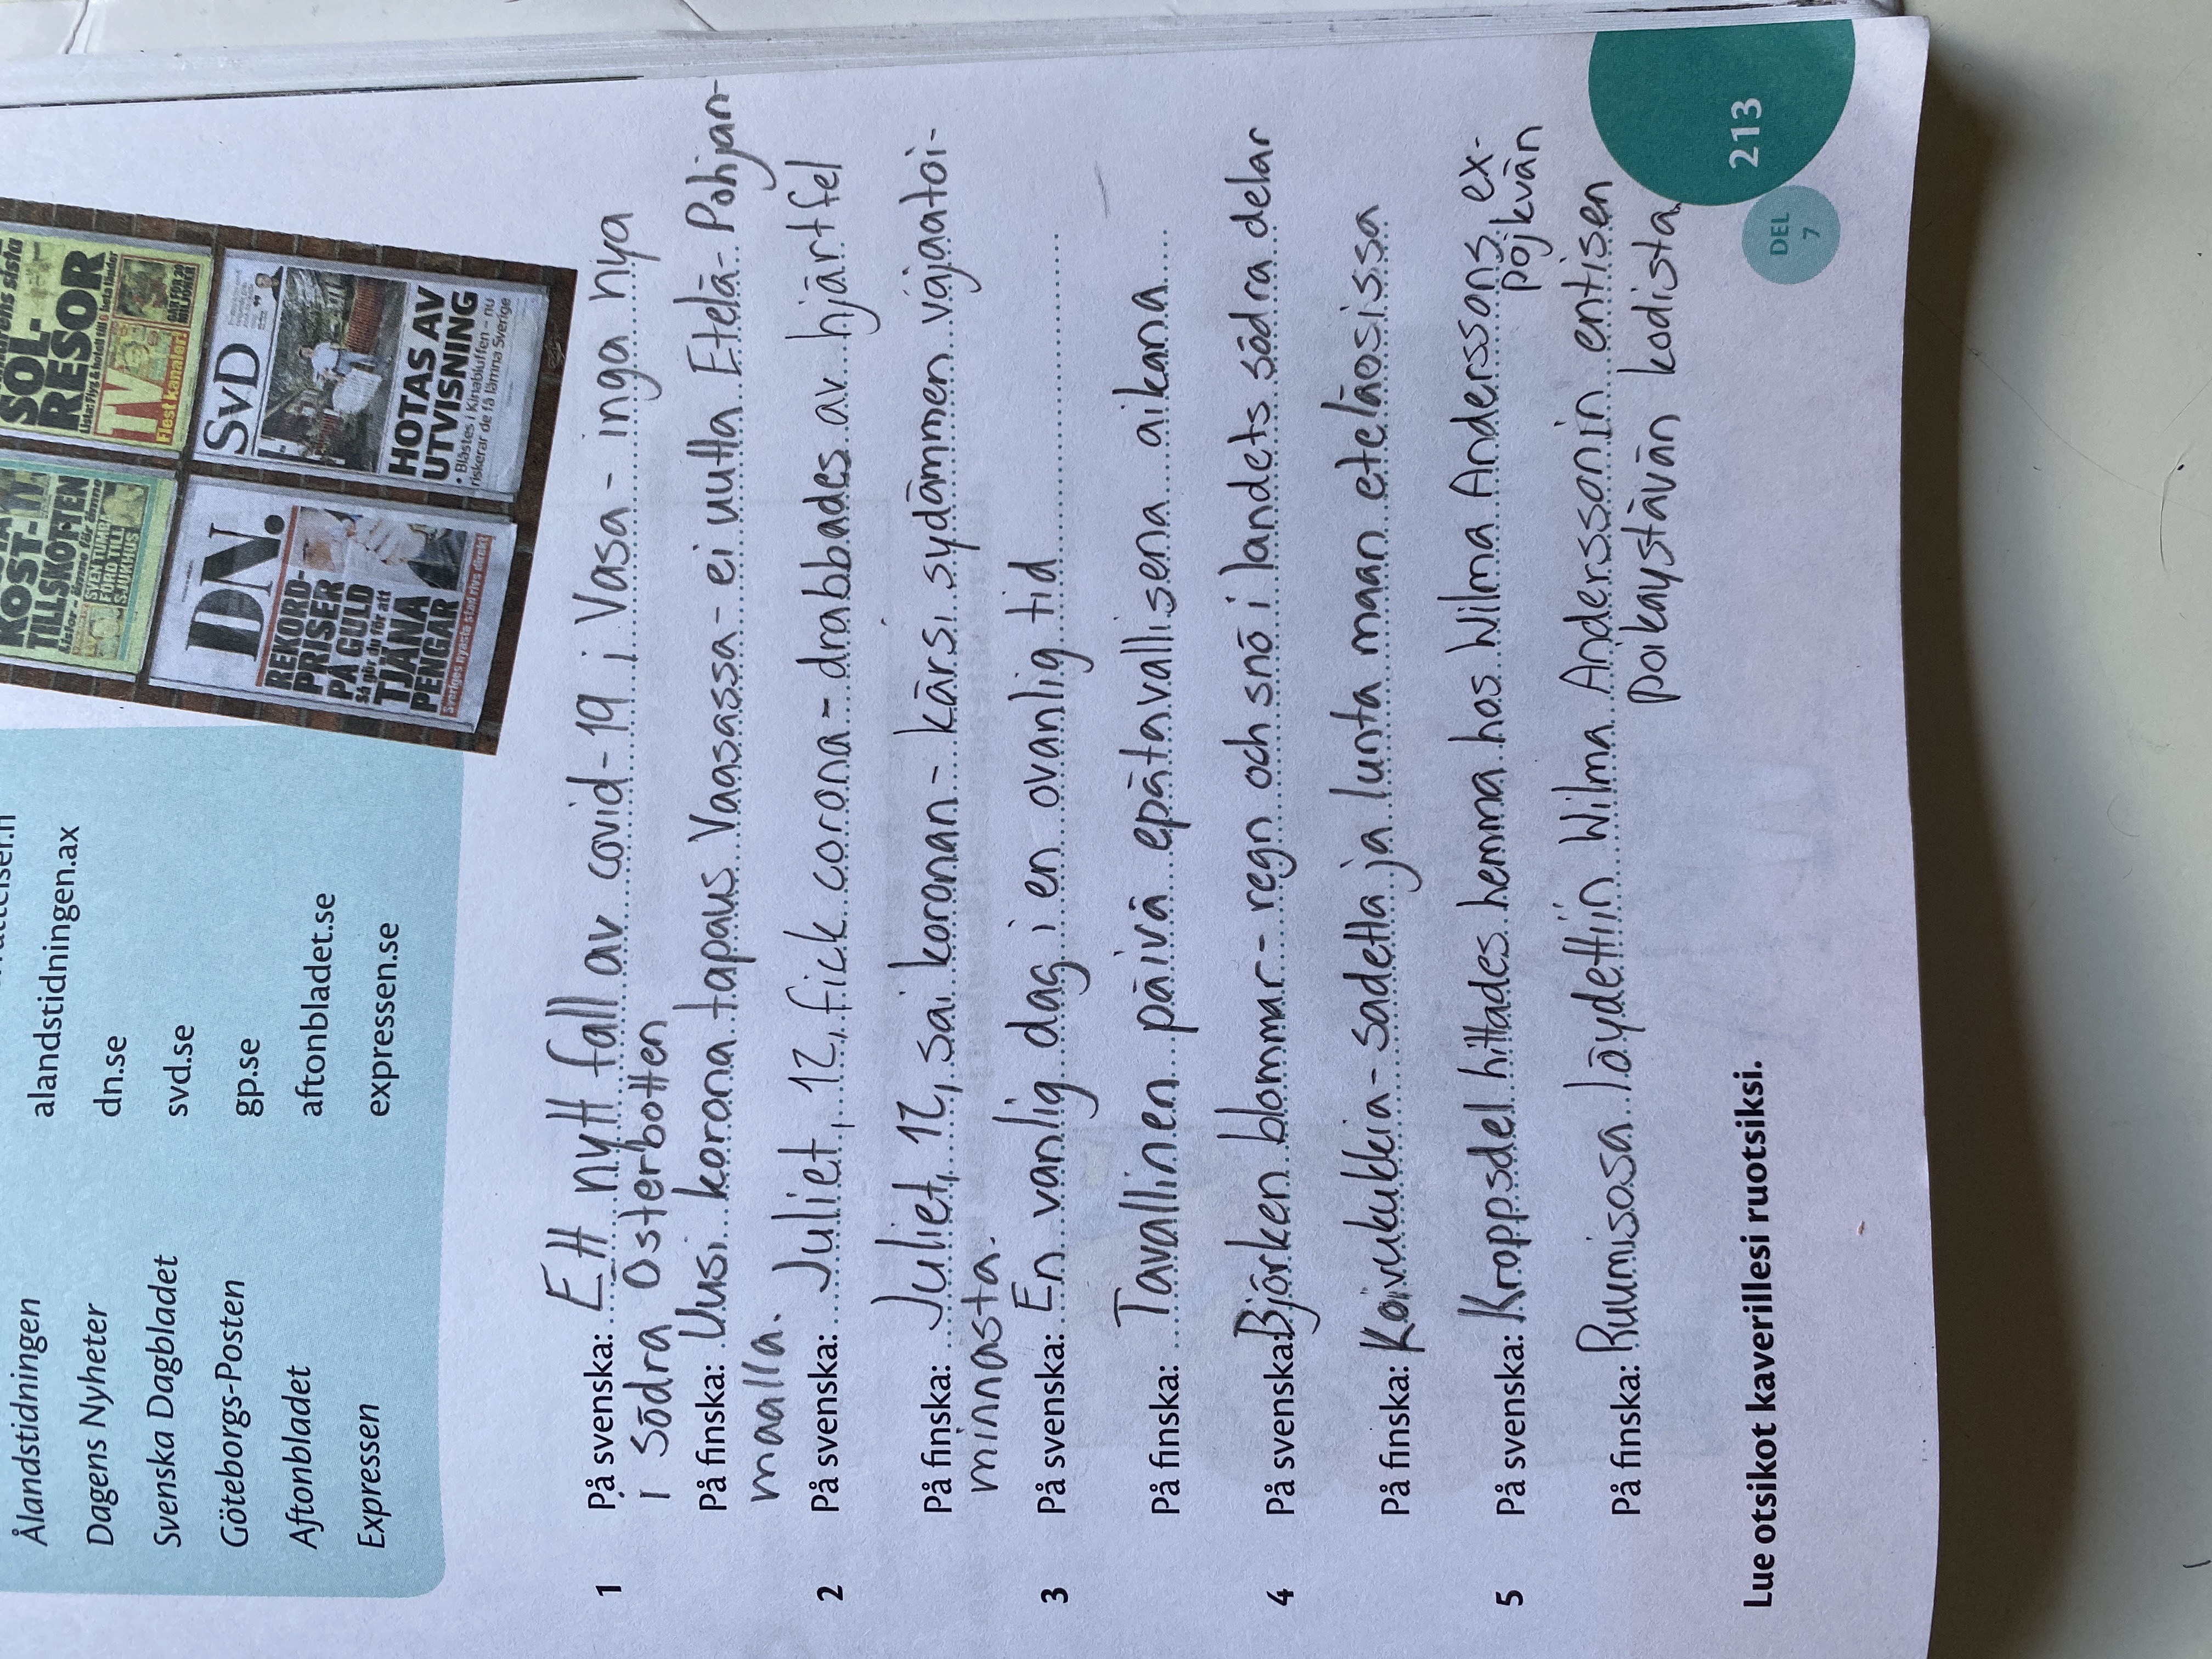 Ålandstidningen alandstidningen.ax
Dagens Nyheter dn.se
Svenska Dagbladet svd.se
Göteborgs-Posten gp.se
Aftonbladet aftonbladet.se
Expressen expressen.se
KOST-
TILLSKOTTEN
SVEN TUMBA
FÖRD TILL
SJUKHUS
SOL-
RESOR
TV
Flest kanaler!
DN.
REKORD-
PRISER
PÅ GULD
Så gör du för att
TJÄNA
PENGAR
Sveriges nyaste stad rivs direkt
SvD
HOTAS AV
UTVISNING
• Blåstes i Kinabluffen – nu
riskerar de få lämna Sverige
1 På svenska: Ett nytt fall av covid-19 i Vasa - inga nya
i Södra Österbotten
På finska: Uusi korona tapaus Vaasassa - ei uutta Etelä-Pohjan-
maalla.
2 På svenska: Juliet, 12, fick corona - drabbades av hjärtfel
På finska: Juliet, 12, sai koronan - kärsi sydämmen vajaatoi-
minnasta.
3 På svenska: En vanlig dag i en ovanlig tid
På finska: Tavallinen päivä epätavallisena aikana
4 På svenska: Björken blommar - regn och snö i landets södra delar
På finska: Koivukukkia - sadetta ja lunta maan eteläosissa
5 På svenska: Kroppsdel hittades hemma hos Wilma Anderssons ex-
pojkvän
På finska: Ruumisosa löydettiin Wilma Anderssonin entisen
poikaystävän kodista
Lue otsikot kaverillesi ruotsiksi.
DEL
7
213